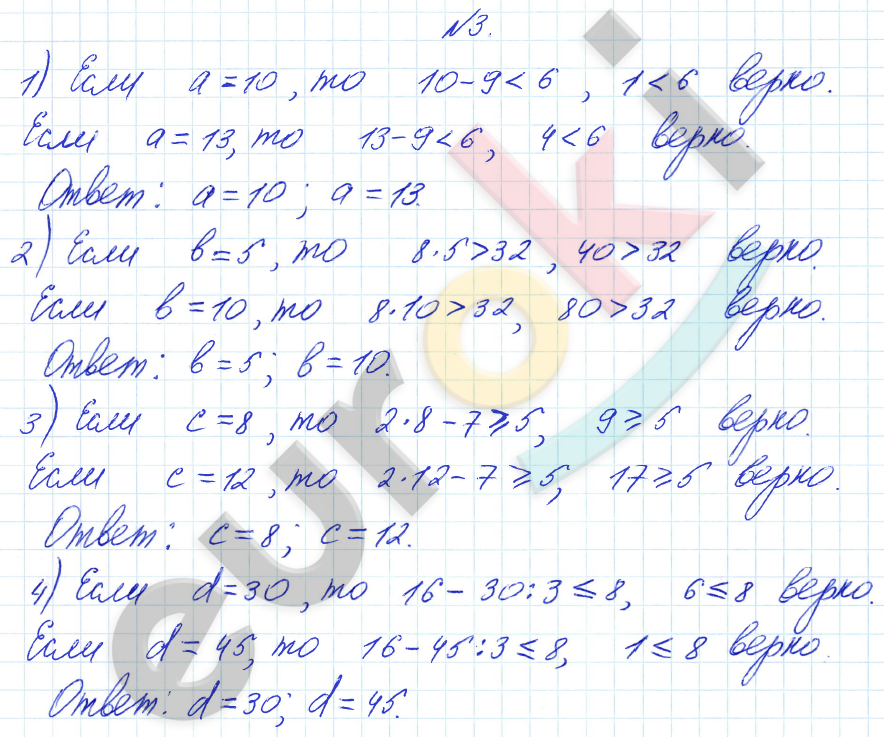 №3.
1) Если a=10, то 10-9<6, 1<6 верно.
Если a=13, то 13-9<6, 4<6 верно.
Ответ: a=10; a=13.
2) Если в=5, то 8·5>32, 40>32 верно.
Если в=10, то 8·10>32, 80>32 верно.
Ответ: в=5; в=10.
3) Если c=8, то 2·8-7⩾5, 9⩾5 верно.
Если c=12, то 2·12-7⩾5, 17⩾5 верно.
Ответ: c=8; c=12.
4) Если d=30, то 16-30:3⩽8, 6⩽8 верно.
Если d=45, то 16-45:3⩽8, 1⩽8 верно.
Ответ: d=30; d=45.
euroki